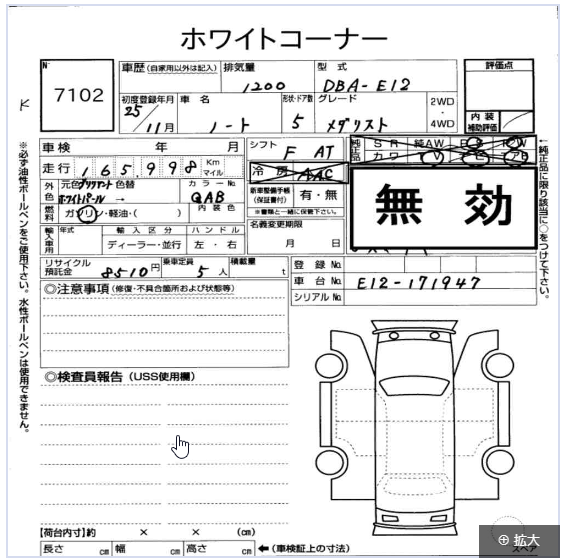 ホワイトコーナー
N°
7102
車歴(自家用以外は記入)
排気量
1200
型式
DBA-E12
評価点
初度登録年月
25
11月
車名
ノート
形状・ドア数
5
グレード
メダリスト
2WD
・
4WD
内装
補助評価
車検 年 月
シフト
F AT
純正品
SR 純AW
カワ
無効
走行 165,998 Km
マイル
冷房
AAC
外色
元色 ブリリアント 色替
ホワイトパール →
カラーNo.
QAB
新車整備手帳
(保証書付)
有・無
※書類と一緒に保管下さい。
燃料
ガソリン・軽油・( )
内装色
名義変更期限
月 日
輸入車用
年式
輸入区分
ディーラー・並行
ハンドル
左・右
リサイクル
預託金
8510円
乗車定員
5人
積載量
t
登録No.
車台No.
E12-171947
シリアルNo.
◎注意事項(修復・不具合箇所および状態等)
◎検査員報告(USS使用欄)
【荷台内寸】約 × × (cm)
長さ cm 幅 cm 高さ cm
←(車検証上の寸法)
スペア
※必ず油性ボールペンをご使用下さい。水性ボールペンは使用できません。
←純正品に限り該当に○をつけて下さい。
拡大